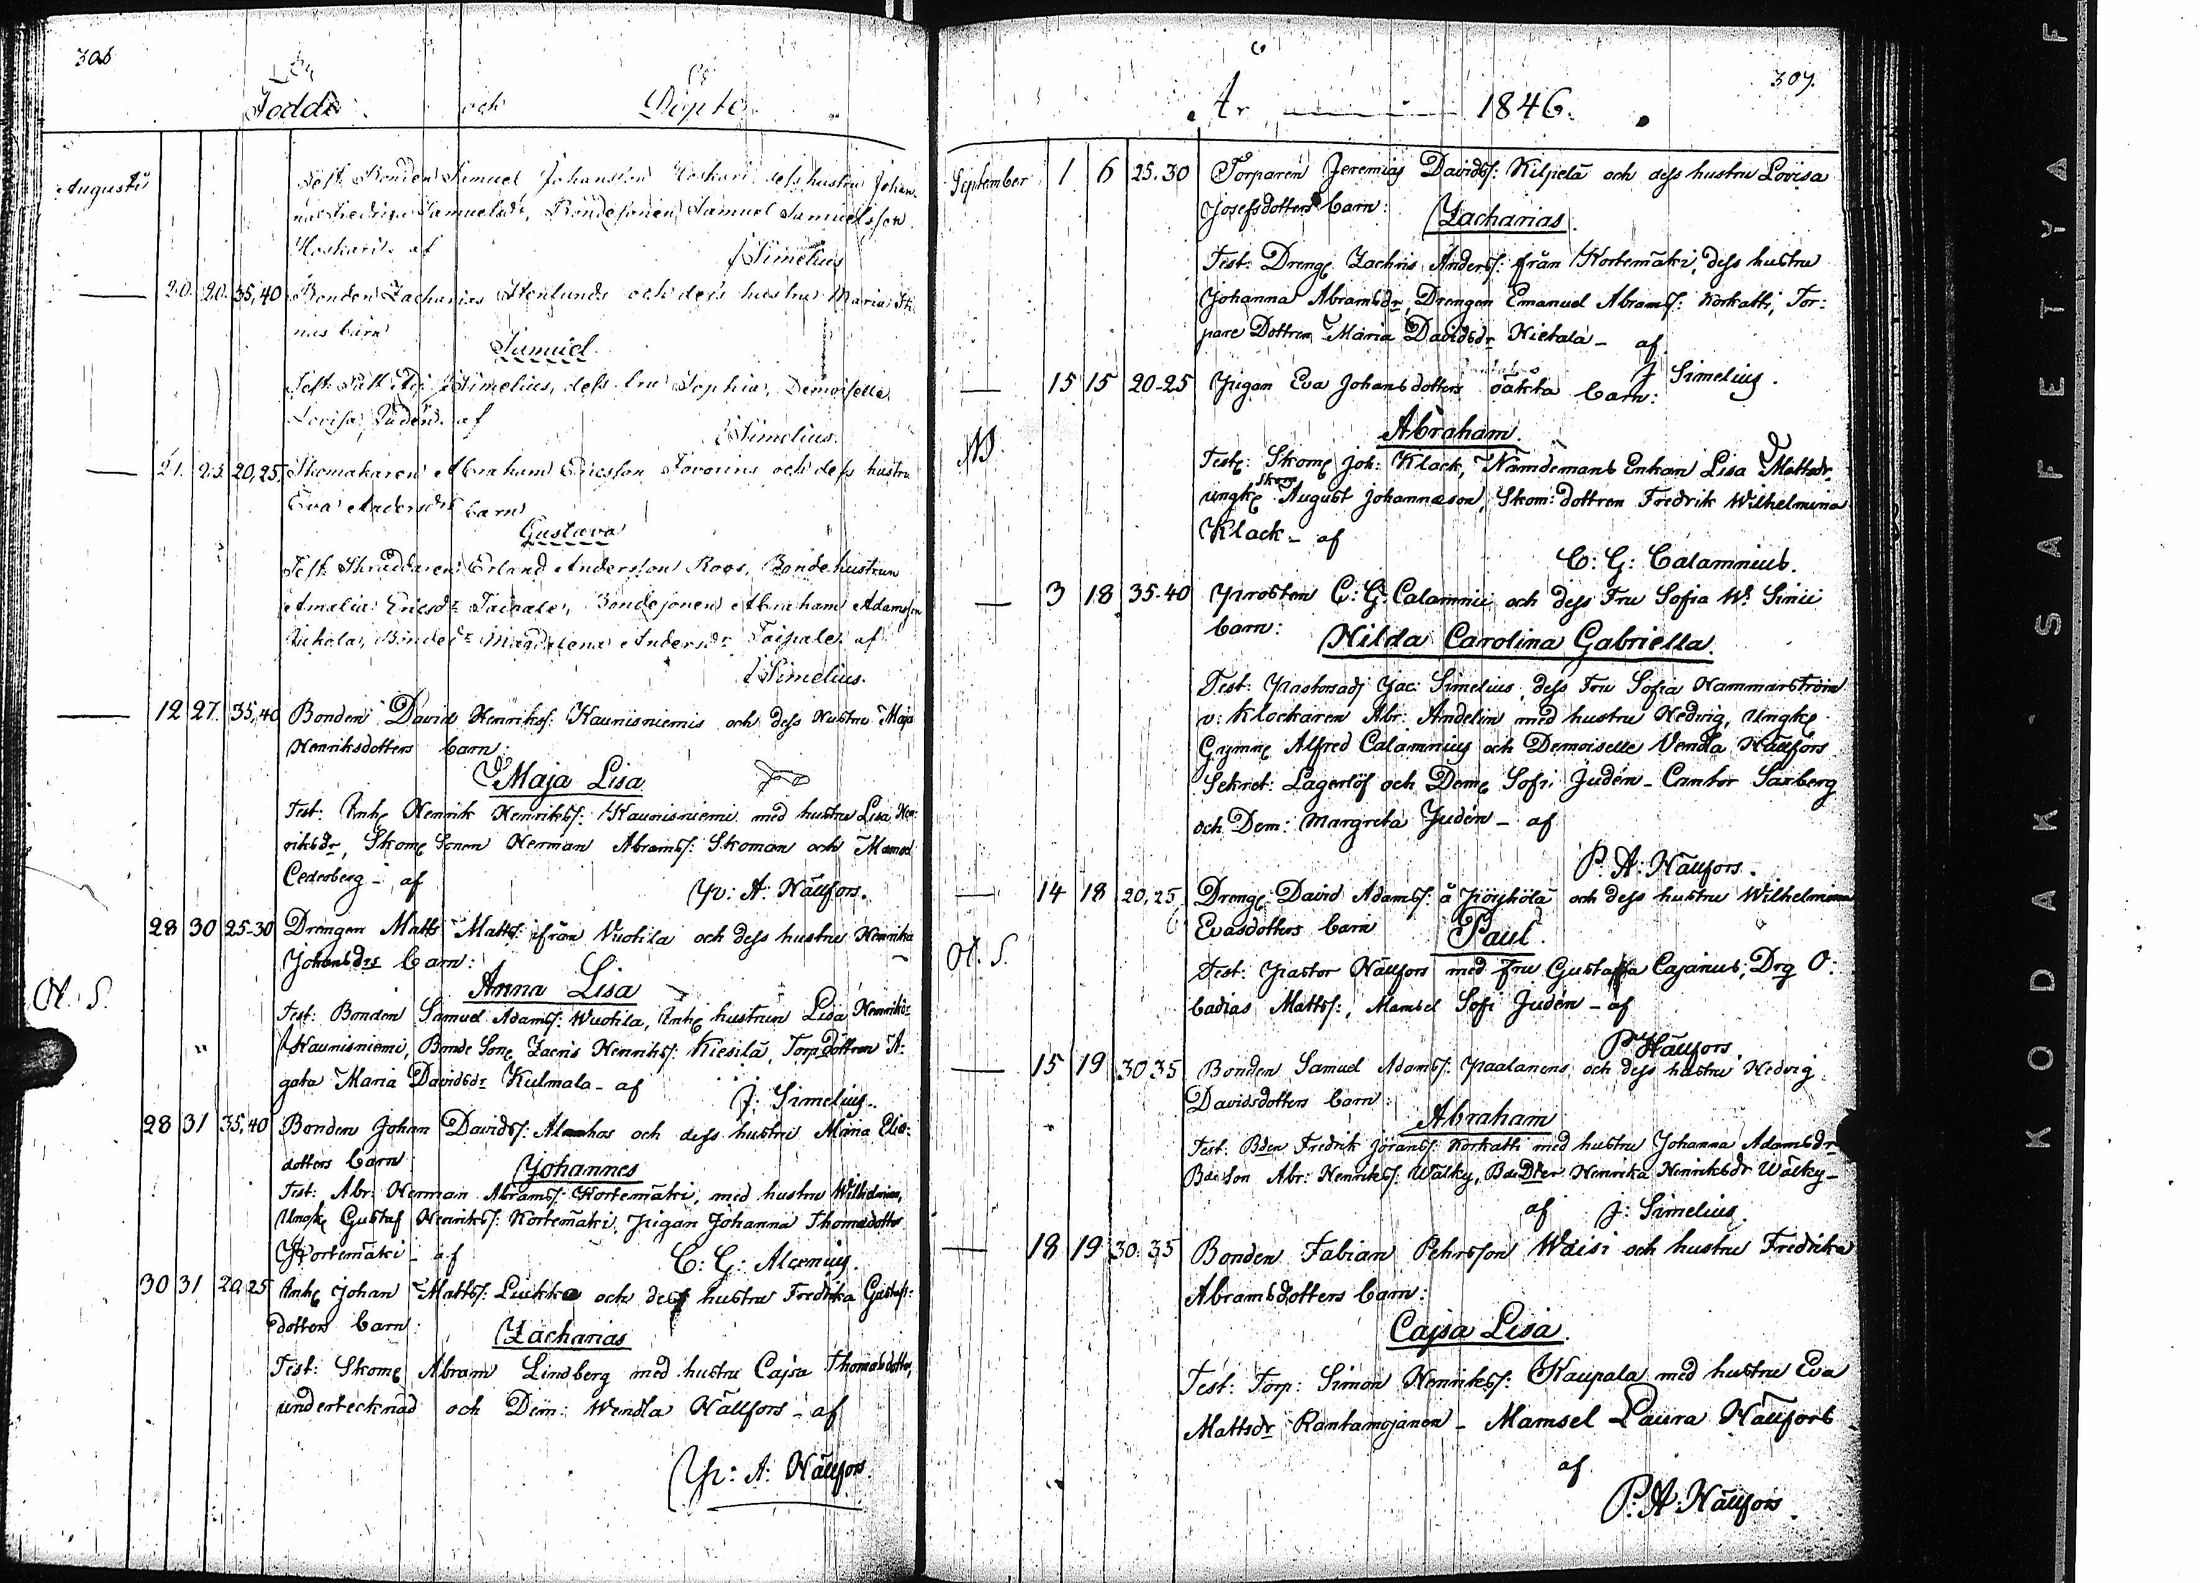 306
Födde och Döpte
Augusti
Test: Bonden Samuel Johansson Hoskari dess hustru Johan-
na Fredrika Samuelsdr, Bondesonen Samuel Samuelsson
Hoskari. af
J Simelius
20. 20. 35,40 Bonden Zacharias Stenlunds och dess hustru Maria Sti-
nas barn
Samuel
Simelius, dess fru Sophia, Demoiselle
Lovisa Judén. af
J Simelius.
21. 23. 20,25. Skomakaren Abraham Ericsson Favorins och dess hustru
Eva Andersdrs barn
Gustava
Test: Skräddaren Erland Andersson Roos, Bondehustrun
Amalia Ericsdr Taipale, Bondesonen Abraham Adamsson
Bondedr Magdalena Andersdr Taipale. af
J Simelius.
12 27. 35,40 Bonden David Henrikss: Kaunisniemis och dess Hustru Maja
Henriksdotters barn:
Maja Lisa
Test: Inhe Henrik Henrikss: Kaunisniemi med hustru Lisa Hen-
riksdr, Skome Sonen Herman Abramss: Skoman och Mamsel
Cederberg - af
P: A: Hällfors.
28 30 25-30 Drängen Matts Mattss: ifrån Vuotila och dess hustru Henrika
Johansdrs barn:
Anna Lisa
N. S.
Test: Bonden Samuel Adamss: Wuotila, Inhe hustrun Lisa Henriksdr
Kaunisniemi, Bonde Sone Zacris Henrikss: Kiesilä, Torp dottren A-
gata Maria Davidsdr Kulmala - af
J: Simelius.
28 31 35,40 Bonden Johan Davidss: Alanhos och dess hustru Maria Elias-
dotters barn
Johannes
Test: Abr: Herman Abramss: Kortemäki, med hustru Wilhelmina,
Ungke Gustaf Henrikss: Kortemäki, Pigan Johanna Thomsdotter
Kortemäki - af
C: G: Alcenius.
30 31 20,25 Inhe Johan Mattss: Luikka och dess hustru Fredrika Gustafs-
dotters barn:
Zacharias
Test: Skome Abram Lindberg med hustru Cajsa Thomasdotter,
undertecknad och Dem: Wendla Hällfors - af
P: A: Hällfors.
307.
År 1846.
September 1 6 25.30 Torparen Jeremias Davidss: Kilpelä och dess hustru Lovisa
Josefsdotters barn:
Zacharias.
Test: Drenge Zachris Anderss: från Kortemäki, dess hustru
Johanna Abramsdr, Drengen Emanuel Abramss: Korkatti, Tor-
pare Dottren Maria Davidsdr Hietala - af
J Simelius.
15 15 20-25 Pigan Eva Johansdotters oäkta barn:
Abraham.
NS
Teste: Skome Joh: Klack, Nämdemans Enkan Lisa Mattsdr,
ungke Skom August Johannesson, Skom: dottren Fredrik Wilhelmina
Klack - af
C: G: Calamnius.
3 18 35-40 Prosten C: G: Calamnii och dess Fru Sofia W: Sinii
barn:
Hilda Carolina Gabriella.
Test: Pastorsadj Jac: Simelius, dess Fru Sofia Hammarström
v: Klockaren Abr: Andelin med hustru Hedvig, Ungke
Gymne Alfred Calamnius och Demoiselle Vendla Hällfors
Sekret: Lagerlöf och Deme Sofi Judén - Cantor Saxberg
och Dem: Margreta Judén - af
P. A: Hällfors.
14 18 20,25 Drenge David Adamss: å Pöyhölä och dess hustru Wilhelmina
Evasdotters barn
Paul.
N. S.
Test: Pastor Hällfors med fru Gustafva Cajanus, Drg O-
badias Mattss:, Mamsel Sofi Judén - af
P Hällfors.
15 19 30 35 Bonden Samuel Adamss: Paalanens och dess hustru Hedvig
Davidsdotters barn:
Abraham
Test: Bden Fredrik Jöranss: Korkatti med hustru Johanna Adamsdr
Bdeson Abr: Henrikss: Wälky, BdeDter Henrika Henriksdr Wälky -
af J: Simelius.
18 19 30. 35 Bonden Fabian Pehrsson Waisi och hustru Fredrika
Abramsdotters barn:
Cajsa Lisa.
Test: Torp: Simon Henrikss: Kaupala med hustru Eva
Mattsdr Rantamojanen - Mamsel Laura Hällfors
af
P. A: Hällfors.
KODAK · SAFETY A F